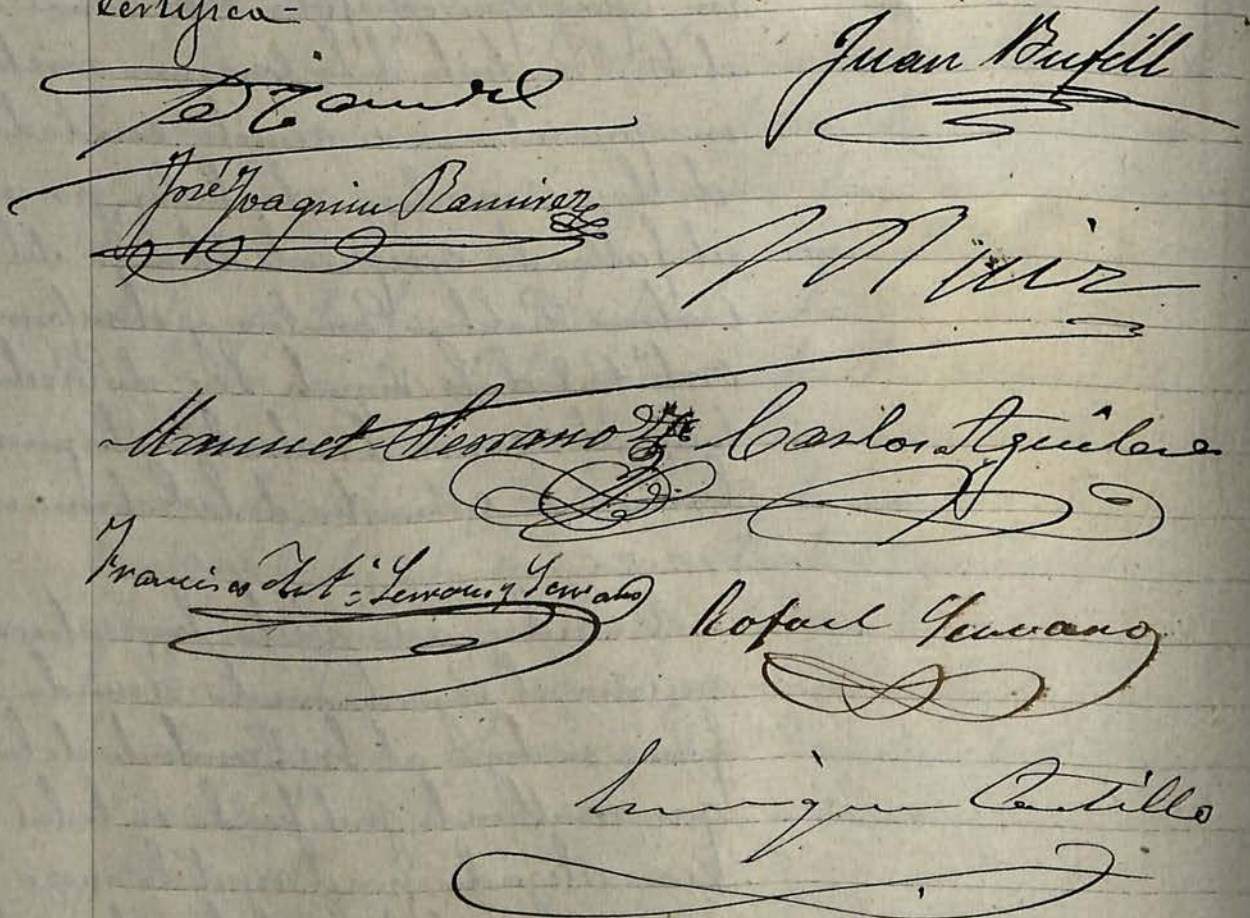 Certifica=
Juan Bufill
José Joaquin Ramirez
Manuel Serrano Carlos Aguilera
Francisco Ant.º Serrano y Serrano
Rafael Serrano
Enrique Castillo